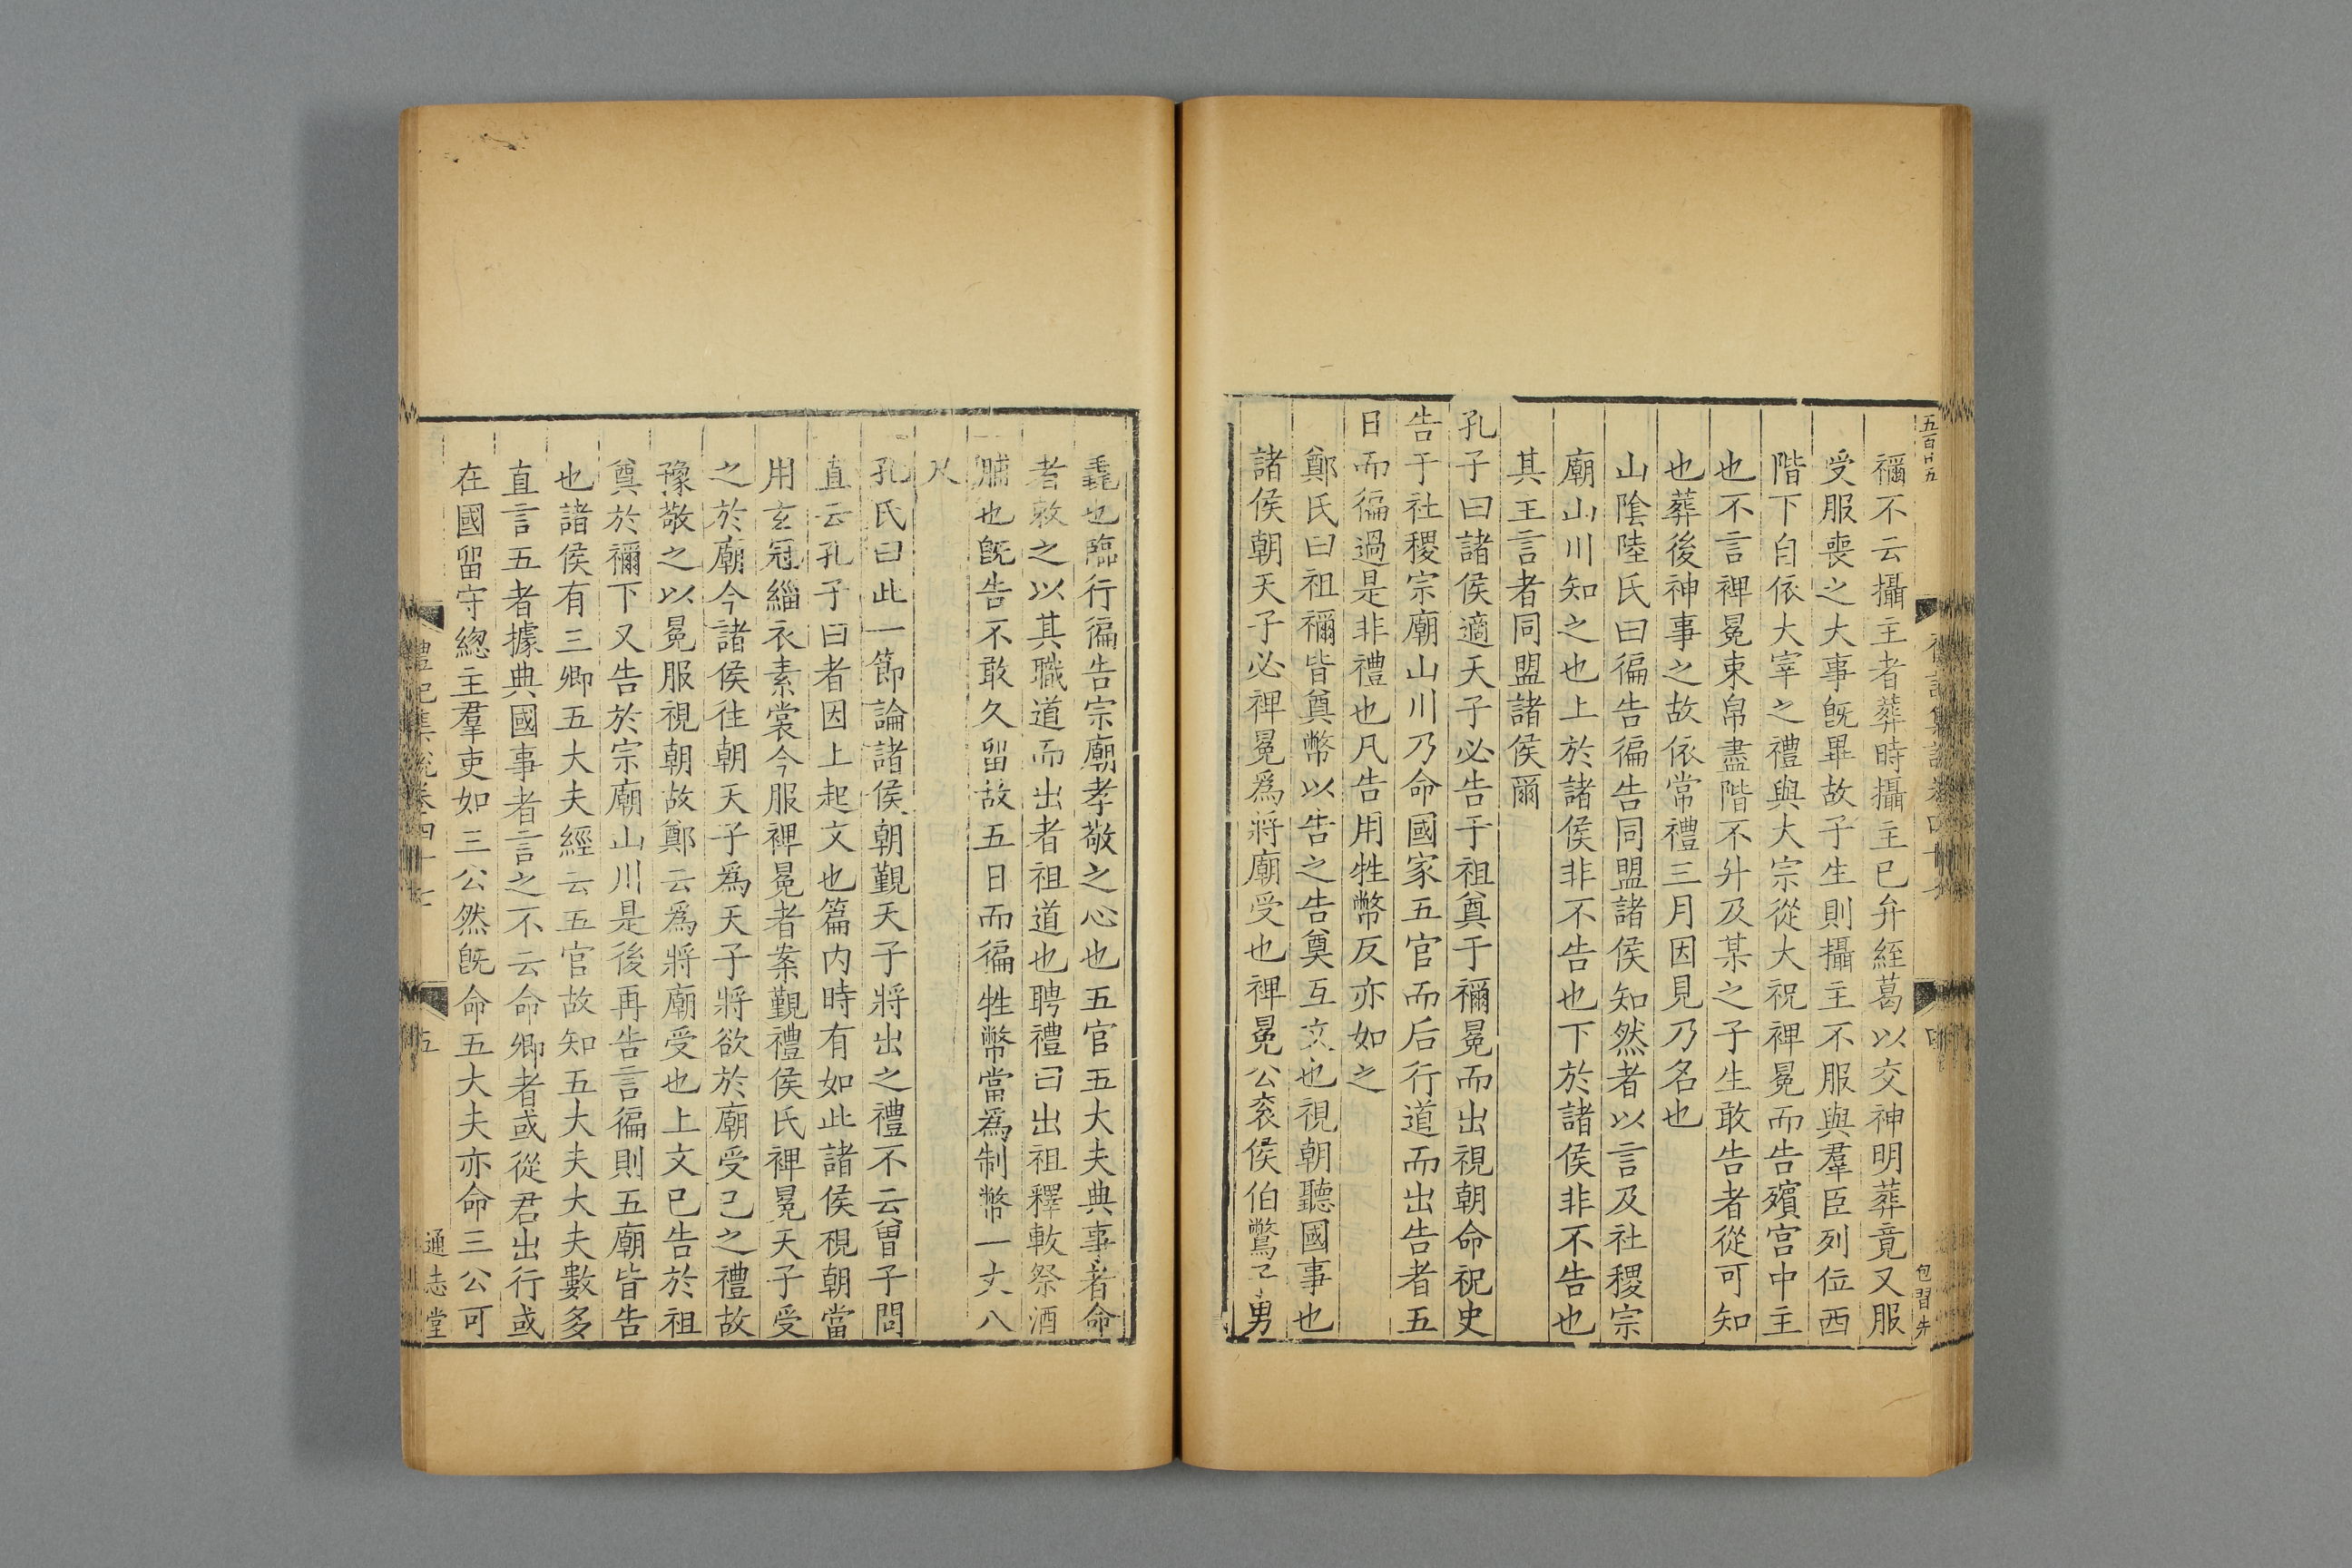 五百廿五
禰不云攝主者葬時攝主已弁絰葛以交神明葬竟又服
受服喪之大事旣畢故子生則攝主不服與羣臣列位西
階下自依大宰之禮與大宗從大祝裨冕而告殯宫中主
也不言裨冕束帛盡階不升及某之子生敢告者從可知
也葬後神事之故依常禮三月因見乃名也
山陰陸氏曰徧告徧告同盟諸侯知然者以言及社稷宗
廟山川知之也上於諸侯非不告也下於諸侯非不告也
其王言者同盟諸侯爾
孔子曰諸侯適天子必告于祖奠于禰冕而出視朝命祝史
告于社稷宗廟山川乃命國家五官而后行道而出告者五
日而徧過是非禮也凡告用牲幣反亦如之
鄭氏曰祖禰皆奠幣以告之告奠互文也視朝聽國事也
諸侯朝天子必裨冕爲將廟受也裨冕公衮侯伯鷩子男
四
包習先
毳也臨行徧告宗廟孝敬之心也五官五大夫典事者命
者敕之以其職道而出者祖道也聘禮曰出祖釋軷祭酒
脯也旣告不敢久留故五日而徧牲幣當爲制幣一丈八
尺
孔氏曰此一節論諸侯朝覲天子將出之禮不云曾子問
直云孔子曰者因上起文也篇内時有如此諸侯視朝當
用玄冠緇衣素裳今服裨冕者案覲禮侯氏裨冕天子受
之於廟今諸侯往朝天子爲天子將欲於廟受己之禮故
豫敬之以冕服視朝故鄭云爲將廟受也上文已告於祖
奠於禰下又告於宗廟山川是後再告言徧則五廟皆告
也諸侯有三卿五大夫經云五官故知五大夫大夫數多
直言五者據典國事者言之不云命卿者或從君出行或
在國留守緫主羣吏如三公然旣命五大夫亦命三公可
禮記集說卷四十七
五
通志堂